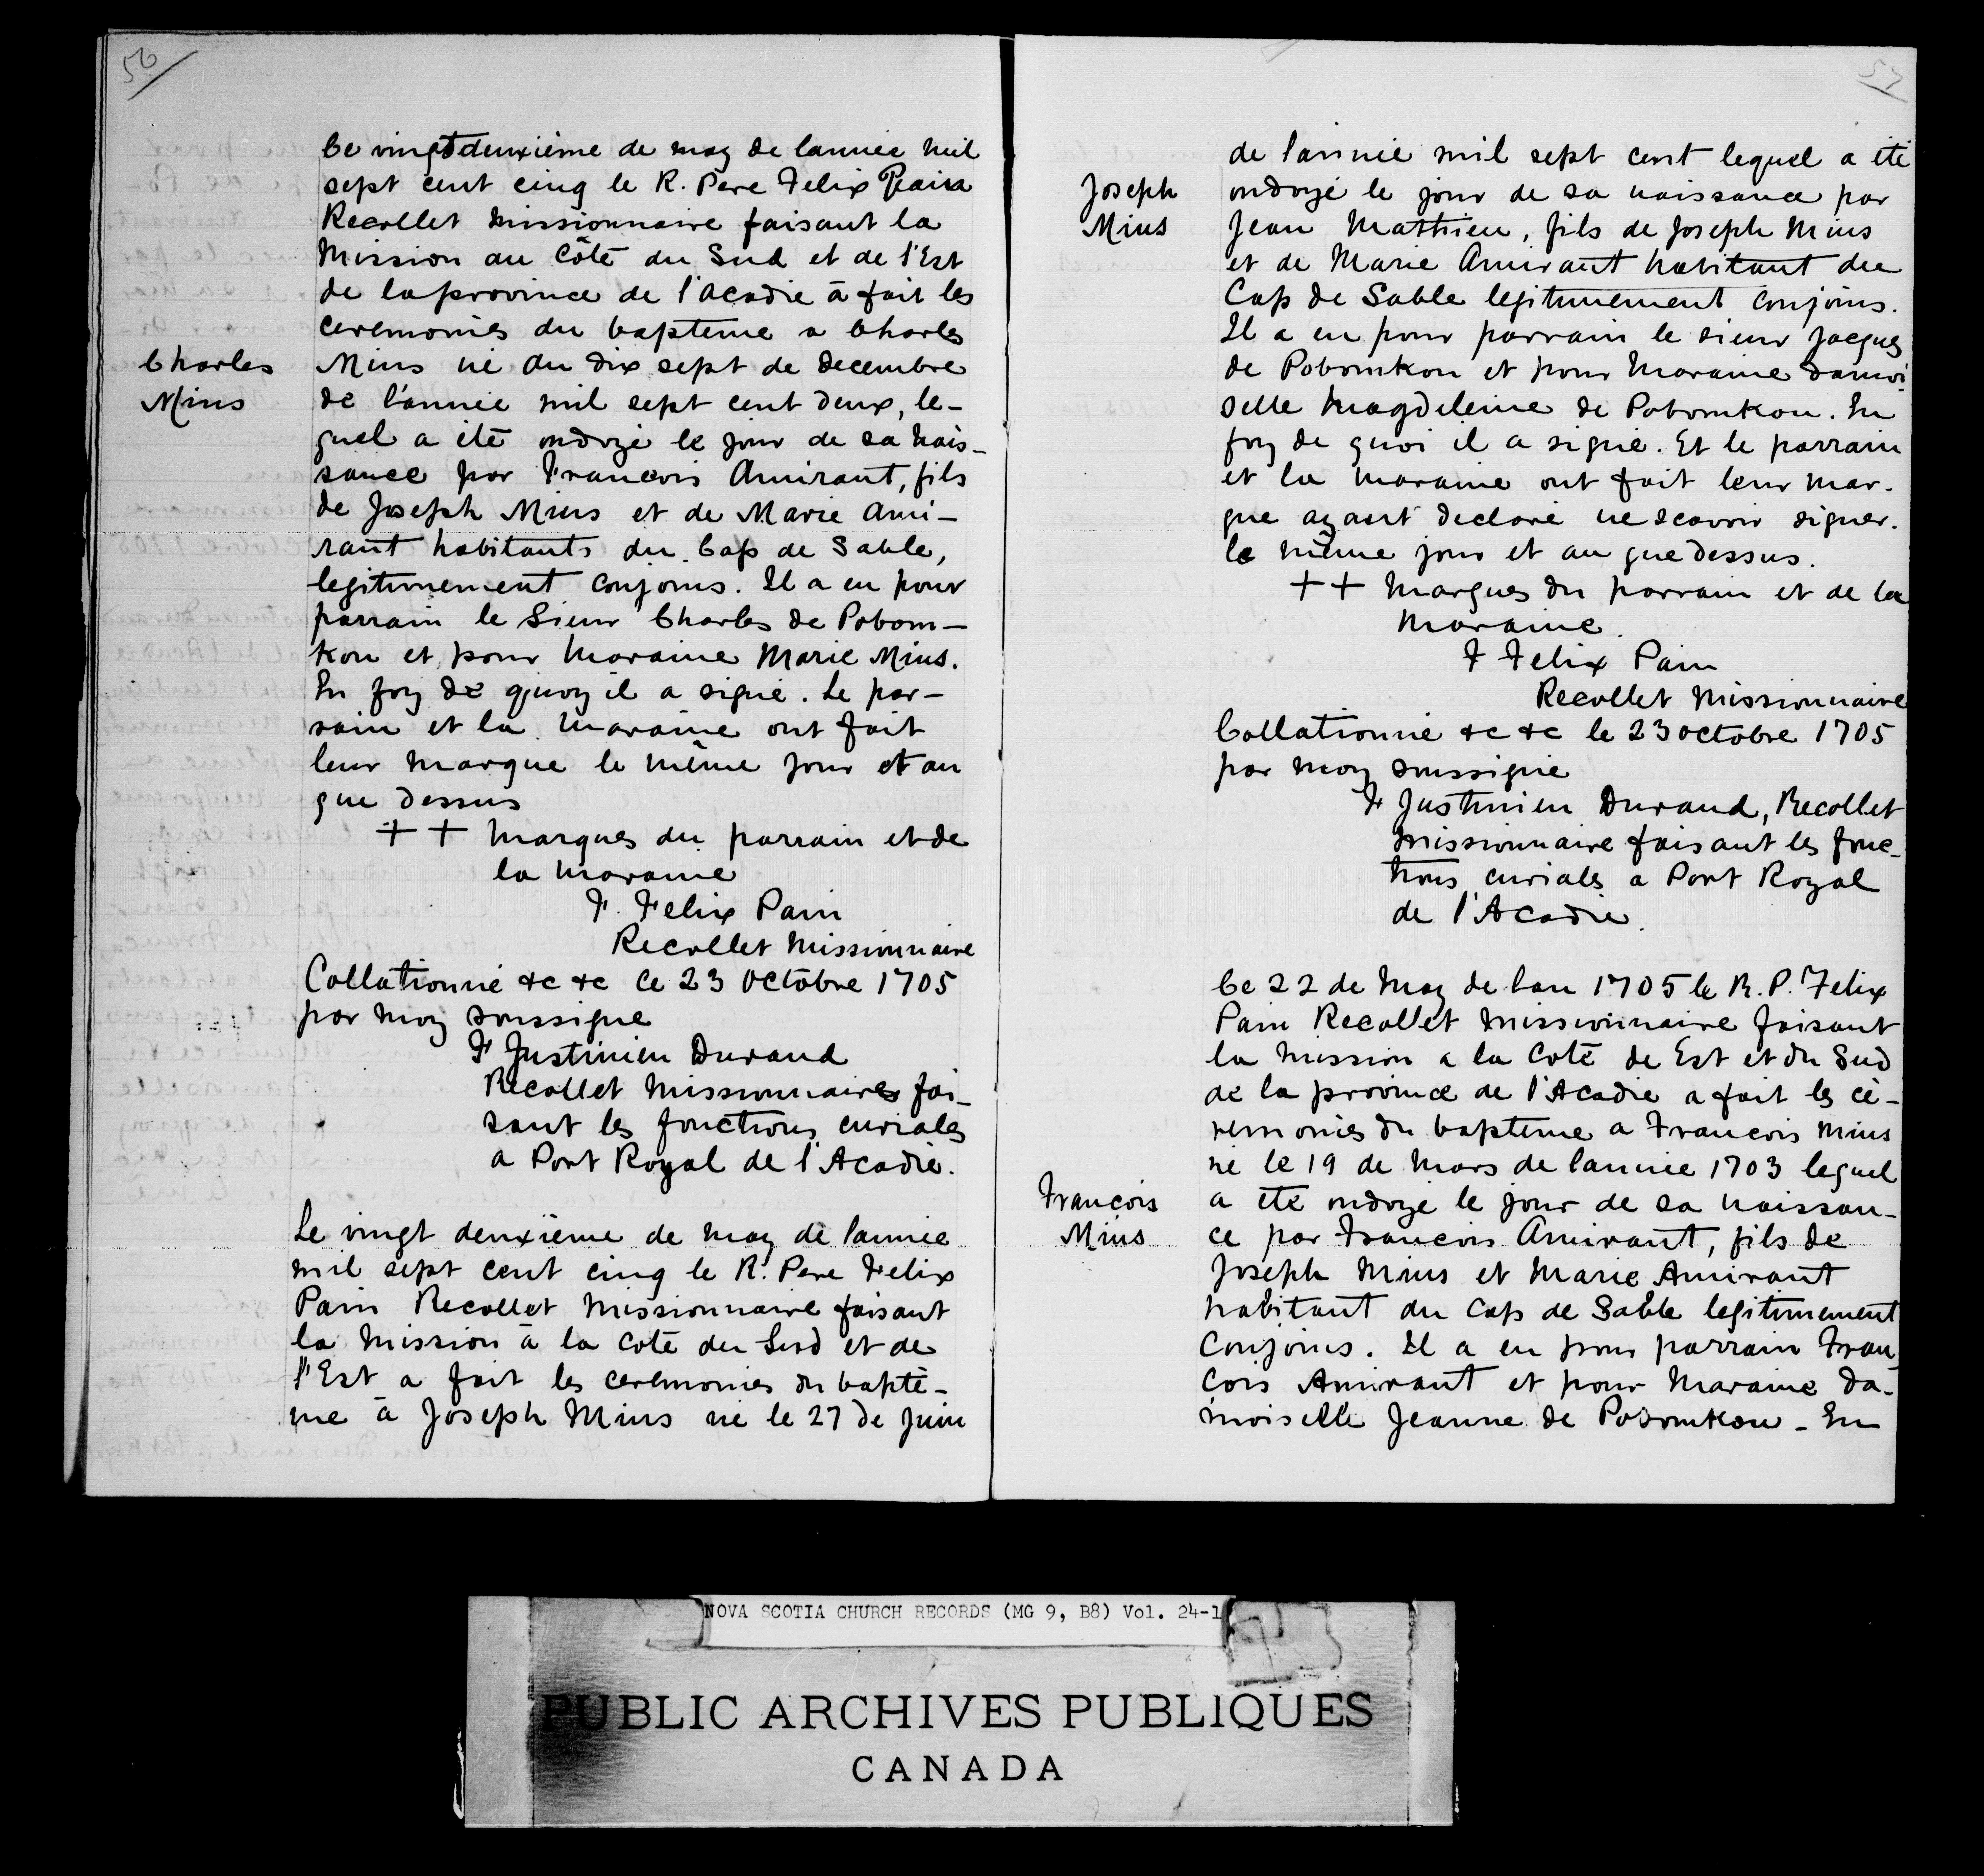 56
Ce vingtdeuxième de may de lannée mil
sept cent cinq le R. Pere Felix Pain
Recollet missionnaire faisant la
Mission au Côté du Sud et de l'Est
de la province de l'acadie à fait les
ceremonies du bapteme a Charles
Charles
Mius
Mius né du dix sept de decembre
de l'année mil sept cent deux, le-
quel a été ondoyé le jour de sa nais-
sance par Francois Amirant, fils
de Joseph Mius et de Marie Ami-
rant habitants du Cap de Sable,
legitimement conjoins. Il a eu pour
parrain le Sieur Charles de Pobom-
kou et pour Maraine Marie Mius.
En foy de quoy il a signé. Le par-
rain et la Maraine ont fait
leur marque le même jour et an
que dessus
+ + Marques du parrain et de
la Maraine
F. Felix Pain
Recollet Missionnaire
Collationné &c &c Ce 23 octobre 1705
par moy soussigné
F Justinien Durand
Recollet Missionnaires fai-
sant les fonctions curiales
a Port Royal de l'Acadie.
Le vingt deuxième de may de l'année
mil sept cent cinq le R. Pere Felix
Pain Recollet Missionnaire faisant
la Mission à la coté du Sud et de
l'Est a fait les ceremonies du baptê-
me à Joseph Mius né le 27 de Juin
57
de l'année mil sept cent lequel a été
Joseph
Mius
ondoyé le jour de sa naissance par
Jean Mathieu, fils de Joseph Mius
et de Marie Amirant habitant du
Cap de Sable legitimement conjoins.
Il a eu pour parrain le sieur Jacques
de Pobomkou et pour Maraine damoi-
selle Magdeleine de Pobomkou. En
foy de quoi il a signé. Et le parrain
et la Maraine ont fait leur mar-
que ayant declaré ne scavoir signer.
le même jour et an que dessus.
+ + Marques du parrain et de la
Maraine.
F Felix Pain
Recollet Missionnaire
Collationné &c &c le 23 octobre 1705
par moy soussigné
F Justinien Durand, Recollet
missionnaire faisant les fonc-
tions curiales a Port Royal
de l'Acadie.
Ce 22 de May de lan 1705 le R. P. Felix
Pain Recollet Missionnaire faisant
la Mission a la Coté de Est et du Sud
de la province de l'Acadie a fait les cé-
remonies du bapteme a Francois Mius
né le 19 de Mars de l'année 1703 lequel
Francois
Mius
a été ondoyé le jour de sa naissan-
ce par Francois Amirant, fils de
Joseph Mius et Marie Amirant
habitant du Cap de Sable legitimement
Conjoins. Il a eu pour parrain Fran-
cois Amirant et pour Maraine da-
moiselle Jeanne de Pobomkou - En
NOVA SCOTIA CHURCH RECORDS (MG 9, B8) Vol. 24-1
PUBLIC ARCHIVES PUBLIQUES
CANADA